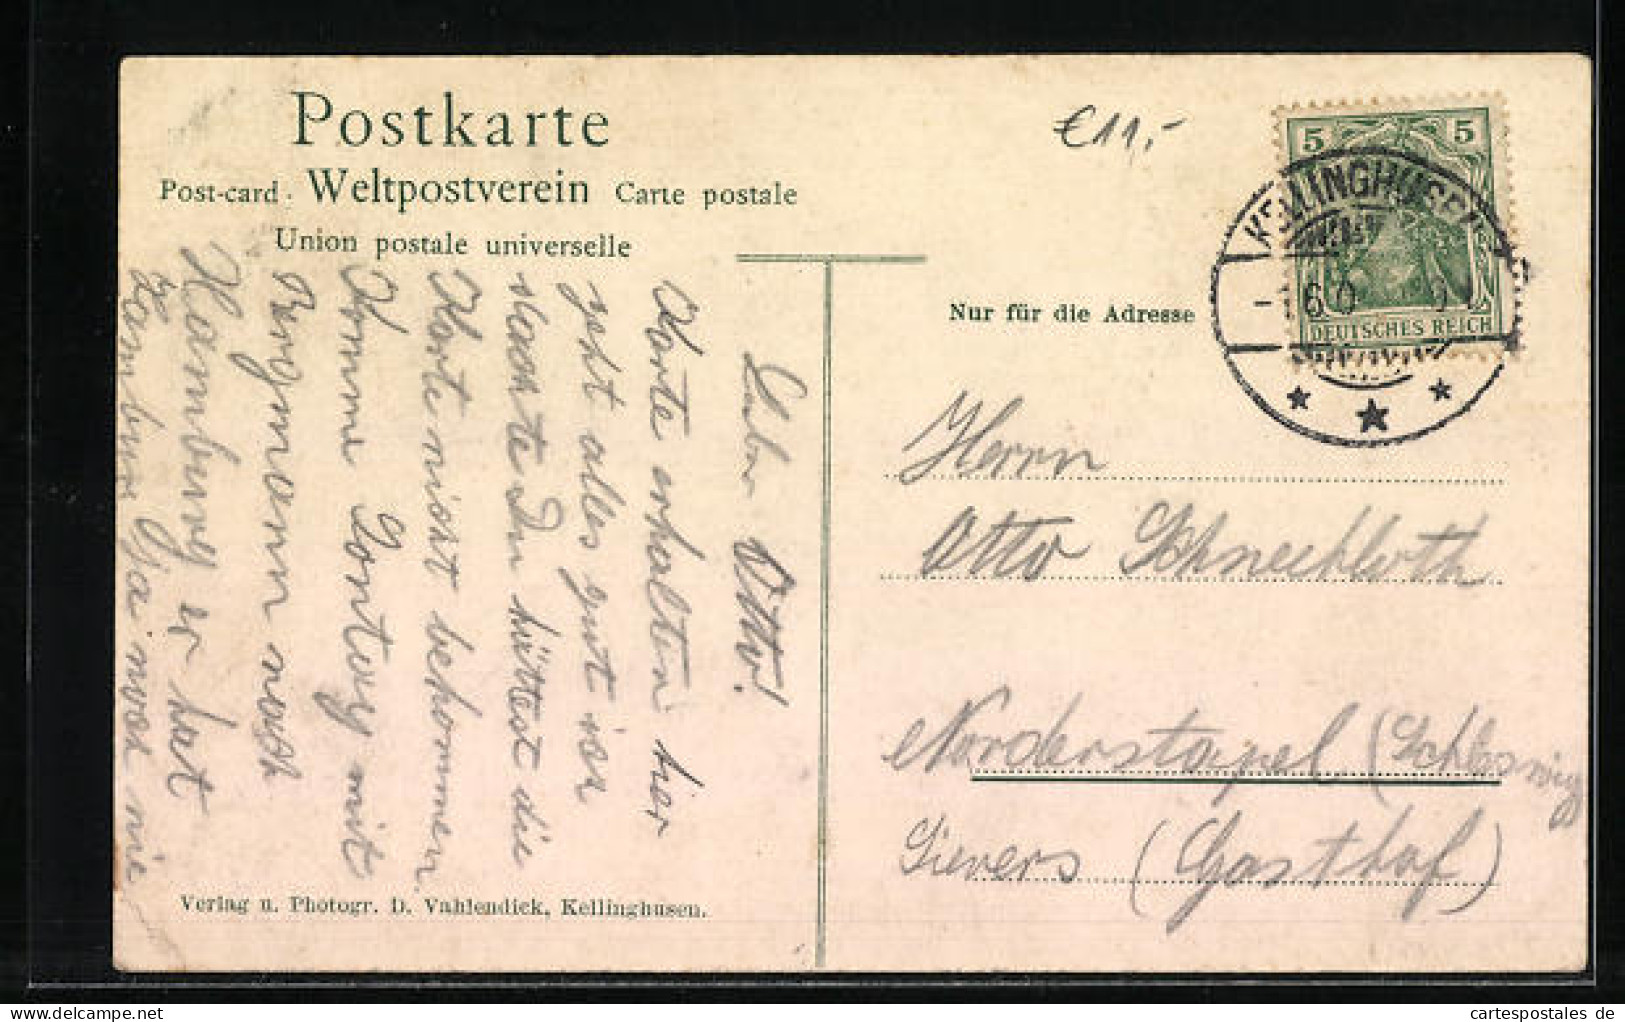 Postkarte
Post-card. Weltpostverein Carte postale
Union postale universelle
€11,-
5 5
KELLINGHUSEN
DEUTSCHES REICH
Nur für die Adresse
Lieber Otto!
Karte erhalten hier
geht alles gut
Du hättest die
Karte nicht bekommen.
Komme Sontag mit
Bergmann nach
Hamburg er hat
Hamburg ja noch nie
Herrn
Otto Schneckloth
Norderstapel (Schleswig
Sievers (Gasthof)
Verlag u. Photogr. D. Vahlendick, Kellinghusen.
www.cartespostales.de
cartespostales de